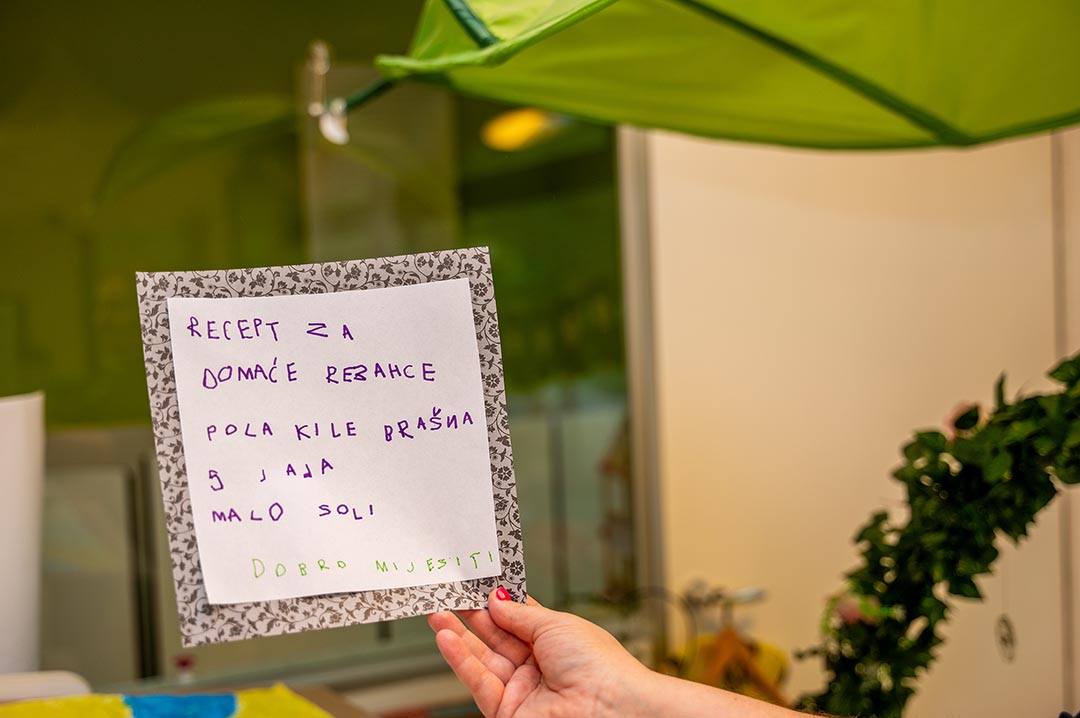 RECEPT ZA
DOMAĆE REZAHCE
POLA KILE BRAŠNA
5 JAJA
MALO SOLI
DOBRO MIJESITI